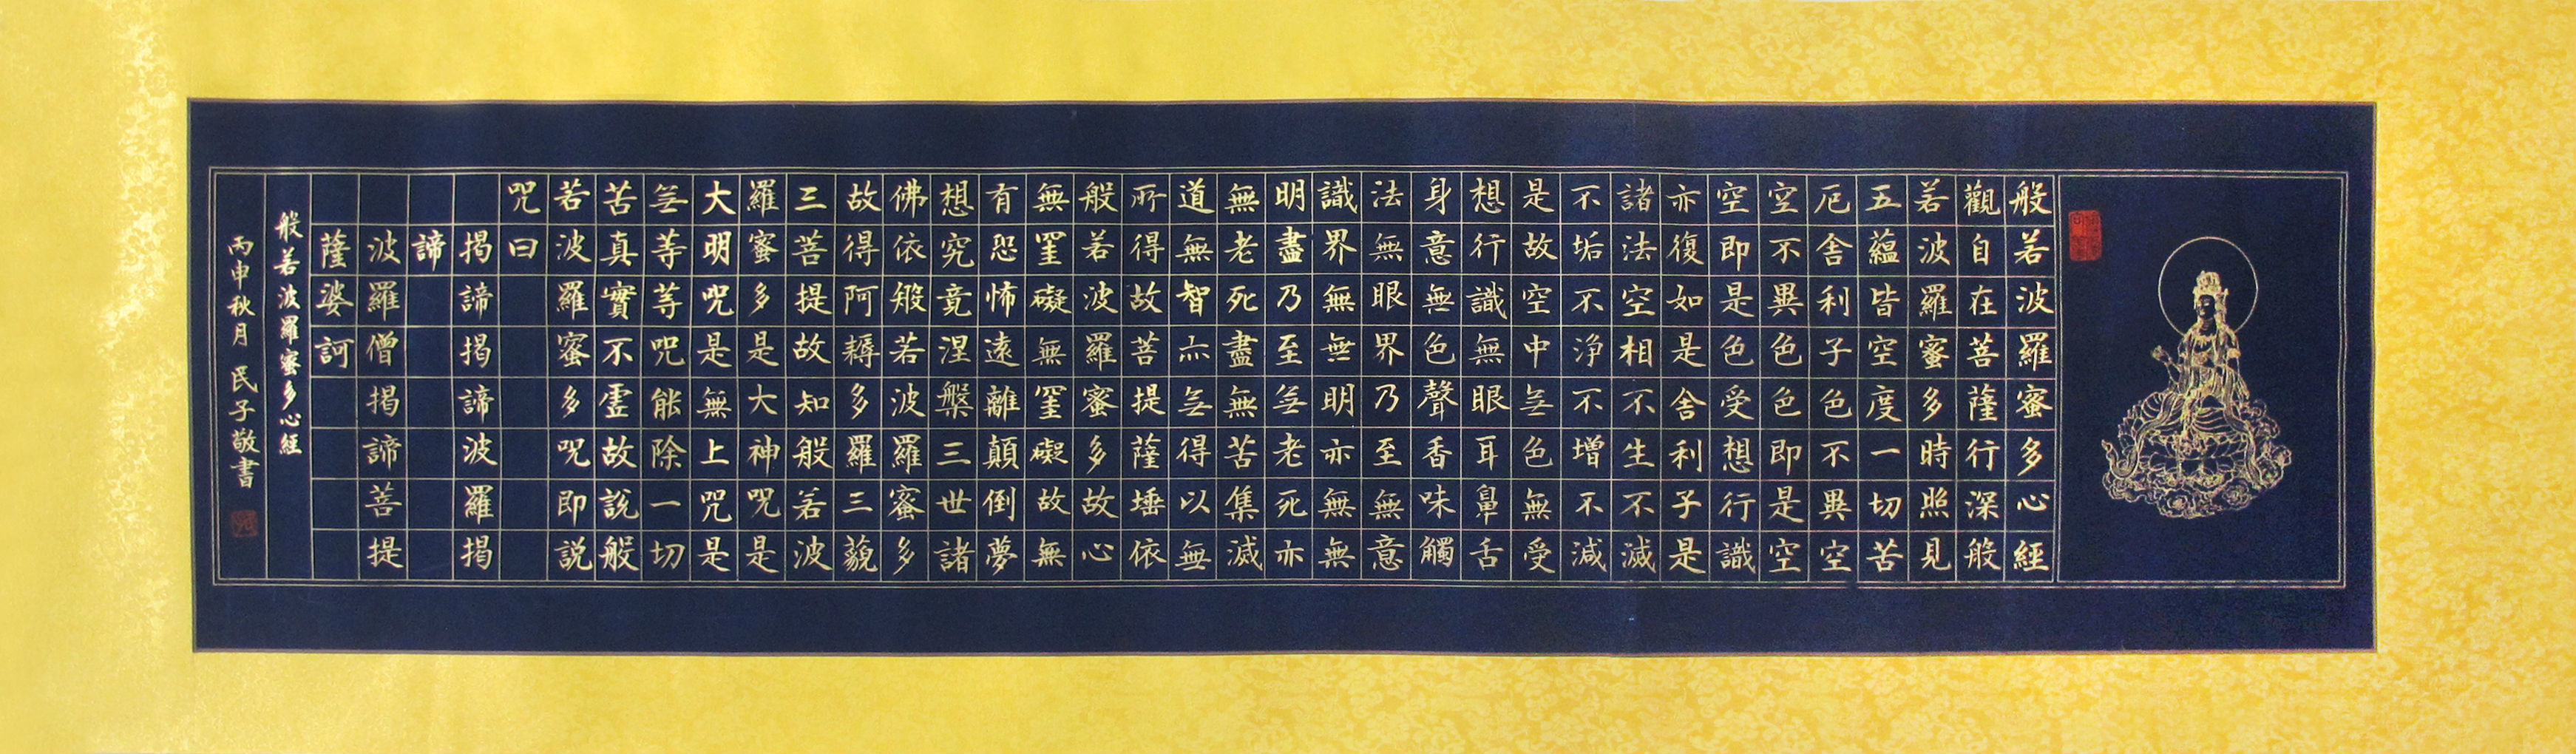 般若波羅蜜多心經
觀自在菩薩行深般
若波羅蜜多時照見
五蘊皆空度一切苦
厄舍利子色不異空
空不異色色即是空
空即是色受想行識
亦復如是舍利子是
諸法空相不生不滅
不垢不淨不增不減
是故空中無色無受
想行識無眼耳鼻舌
身意無色聲香味觸
法無眼界乃至無意
識界無無明亦無無
明盡乃至無老死亦
無老死盡無苦集滅
道無智亦無得以無
所得故菩提薩埵依
般若波羅蜜多故心
無罣礙無罣礙故無
有恐怖遠離顛倒夢
想究竟涅槃三世諸
佛依般若波羅蜜多
故得阿耨多羅三藐
三菩提故知般若波
羅蜜多是大神咒是
大明咒是無上咒是
無等等咒能除一切
苦真實不虛故說般
若波羅蜜多咒即說
咒曰
揭諦揭諦波羅揭
諦
波羅僧揭諦菩提
薩婆訶
般若波羅蜜多心經
丙申秋月 民子敬書